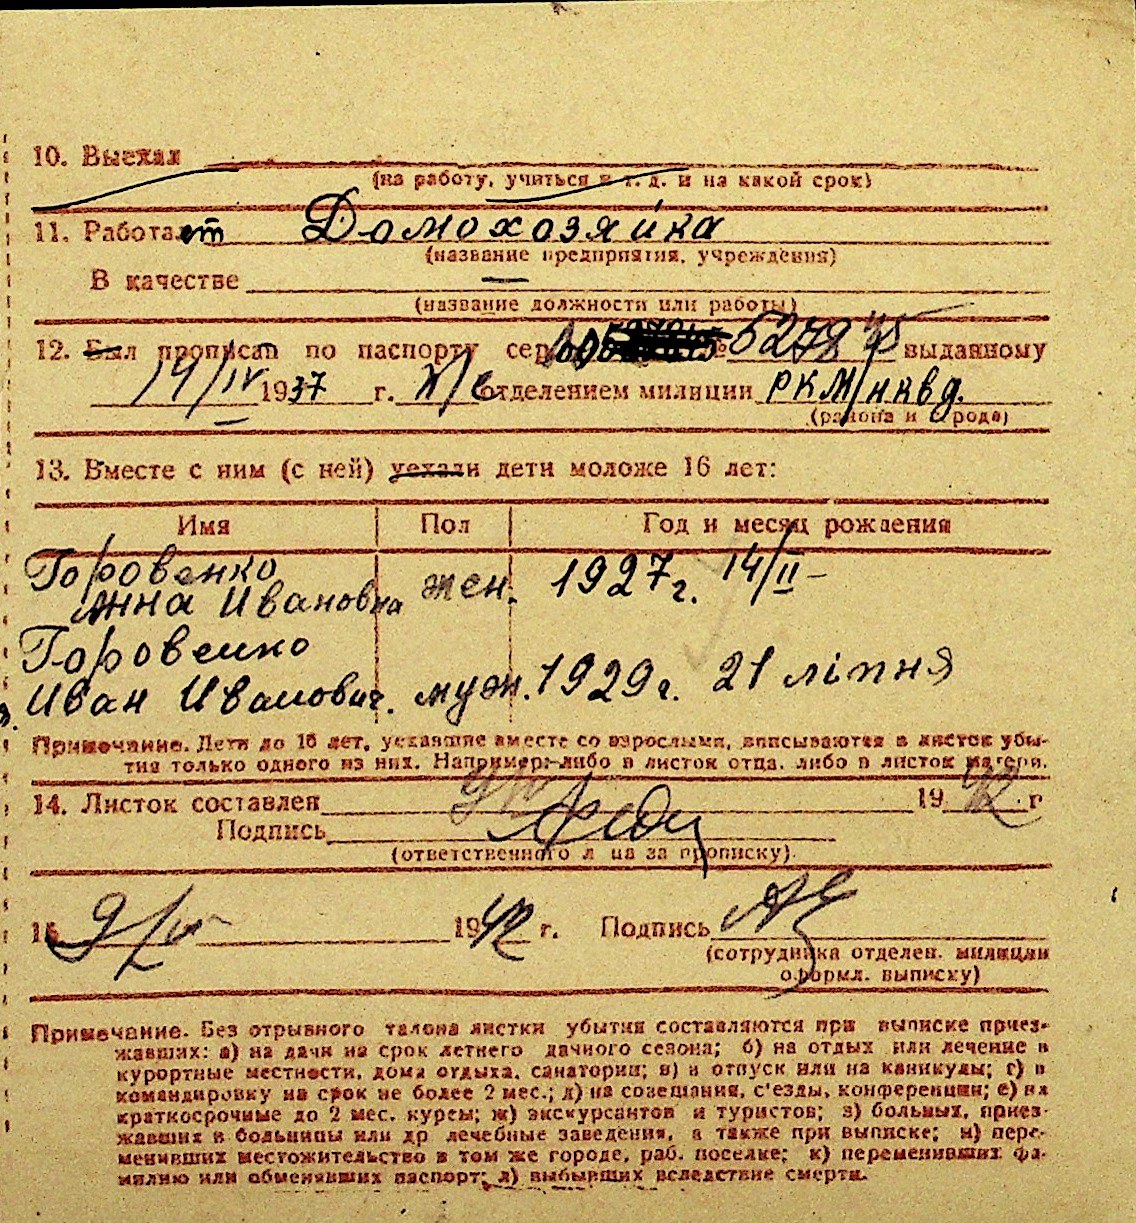 10. Выехал
(на работу, учиться и т. д. и на какой срок)
11. Работает Домохозяйка
(название предприятия, учреждения)
В качестве —
(название должности или работы)
12. Был прописан по паспорту серии № 527945 выданному
14/IV 1937 г. отделением милиции РКМ/НКВД.
(района и города)
13. Вместе с ним (с ней) уехали дети моложе 16 лет:
Имя Пол Год и месяц рождения
Горовенко
Анна Ивановна жен. 1927 г. 14/II –
Горовенко
Иван Иванович. муж. 1929 г. 21 ліпня
Примечание. Дети до 16 лет, уехавшие вместе со взрослыми, вписываются в листок убы-
тия только одного из них. Например: либо в листок отца, либо в листок матери.
14. Листок составлен 1942 г
Подпись
(ответственного лица за прописку).
15 9/IV 1942 г. Подпись
(сотрудника отделен. милиции
оформл. выписку)
Примечание. Без отрывного талона листки убытия составляются при выписке приез-
жавших: а) на дачи на срок летнего дачного сезона; б) на отдых или лечение в
курортные местности, дома отдыха, санатории; в) в отпуск или на каникулы; г) в
командировку на срок не более 2 мес.; д) на совещания, с'езды, конференции; е) на
краткосрочные до 2 мес. курсы; ж) экскурсантов и туристов; з) больных, приез-
жавших в больницы или др лечебные заведения, а также при выписке; и) пере-
менивших местожительство в том же городе, раб. поселке; к) переменивших фа-
милию или обменявших паспорт; л) выбывших вследствие смерти.